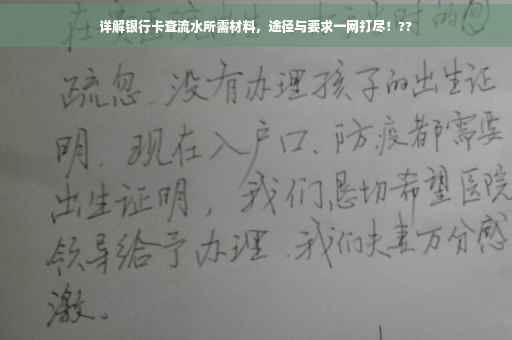 详解银行卡查流水所需材料，途径与要求一网打尽！??
疏忽、没有办理孩子的出生证
明、现在入户口、防疫都需要
出生证明，我们恳切希望医院
领导给予办理、我们夫妻万分感
激。